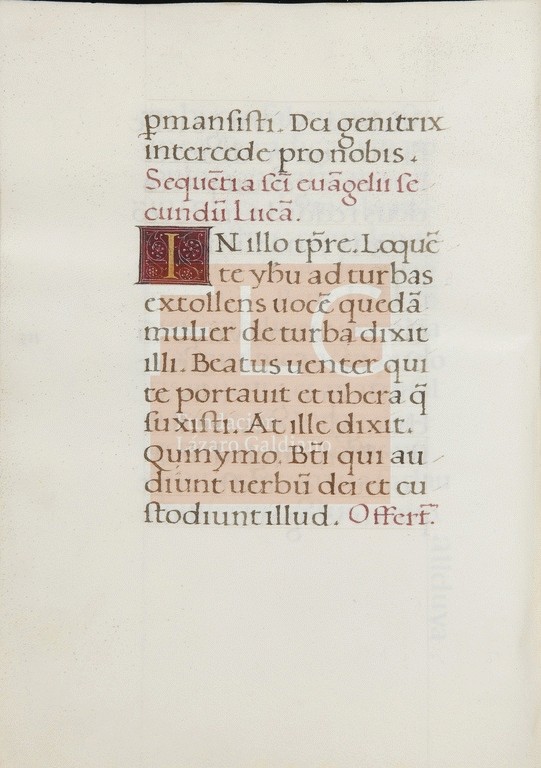 ꝑmansisti. Dei genitrix
intercede pro nobis.
Sequẽtia sc̃i euãgelii se
cundũ Lucã.
IN illo tp̃re. Loquẽ
te yh̃u ad turbas
extollens uocẽ quedã
mulier de turba dixit
illi. Beatus uenter qui
te portauit et ubera q̃
suxisti. At ille dixit.
Quinymo. Bt̃i qui au
diunt uerbũ dei et cu
stodiunt illud. Offert̃.
FLG
Fundación
Lázaro Galdiano